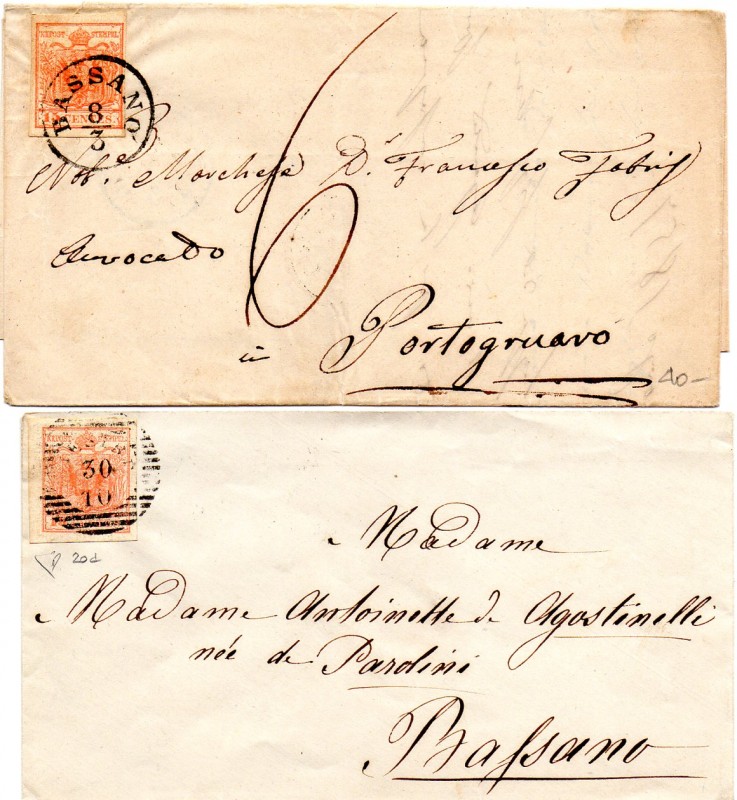 KKPOST-STEMPEL
BASSANO
8
3
15 CENTES.
6
Nob.e Marchese D.r Francesco Fabris
Avvocado
in Portogruaro
40-
KKPOST-STEMPEL
30
10
20d
Madame
Madame Antoinette de Agostinelli
née de Parolini
Bassano